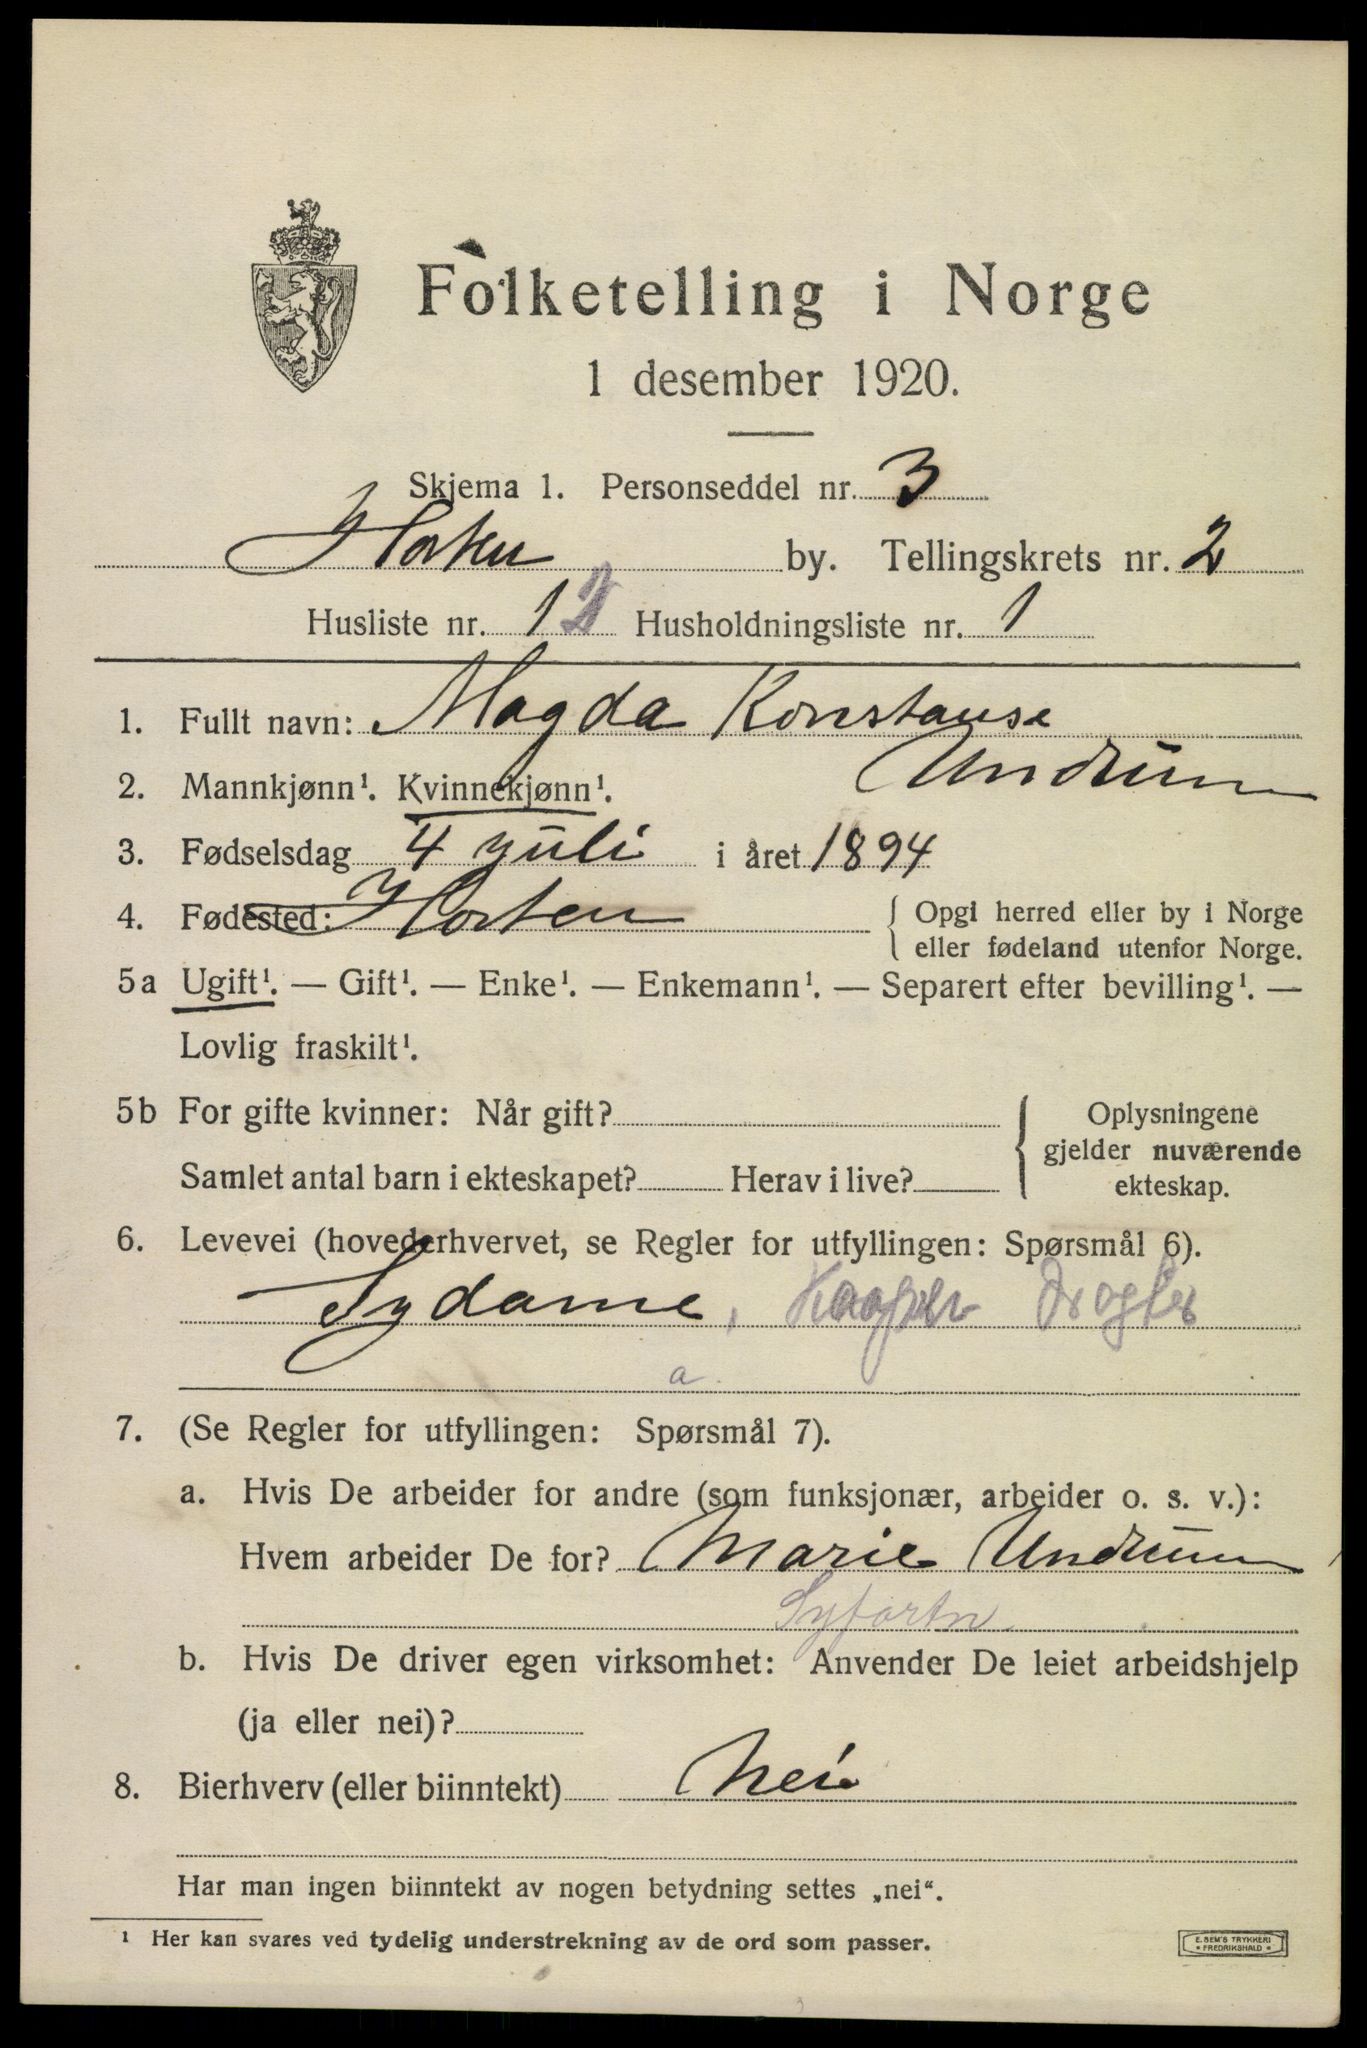 Folketelling i Norge
1 desember 1920.
Skjema 1. Personseddel nr. 3
Horten by. Tellingskrets nr. 2
Husliste nr. 12 Husholdningsliste nr. 1
1. Fullt navn: Magda Konstanse
Undrum
2. Mannkjønn¹. Kvinnekjønn¹.
3. Fødselsdag 4 juli i året 1894
4. Fødested: Horten { Opgi herred eller by i Norge
eller fødeland utenfor Norge.
5a Ugift¹. — Gift¹. — Enke¹. — Enkemann¹. — Separert efter bevilling¹. —
Lovlig fraskilt¹.
5b For gifte kvinner: Når gift? { Oplysningene
gjelder nuværende
Samlet antal barn i ekteskapet? Herav i live? ekteskap.
6. Levevei (hovederhvervet, se Regler for utfyllingen: Spørsmål 6).
Sydame,
a.
7. (Se Regler for utfyllingen: Spørsmål 7).
a. Hvis De arbeider for andre (som funksjonær, arbeider o. s. v.):
Hvem arbeider De for? Marie Undrum
Syfortn.
b. Hvis De driver egen virksomhet: Anvender De leiet arbeidshjelp
(ja eller nei)?
8. Bierhverv (eller biinntekt) Nei
Har man ingen biinntekt av nogen betydning settes „nei“.
¹ Her kan svares ved tydelig understrekning av de ord som passer.
E. SEM'S TRYKKERI
* FREDRIKSHALD *